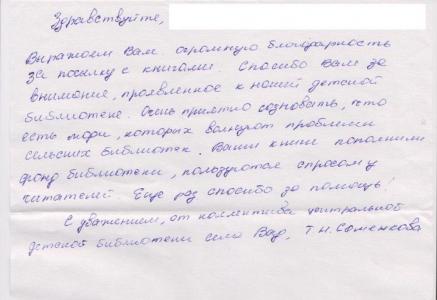 Здравствуйте,
Выражаем Вам огромную благодарность
за посылку с книгами. Спасибо Вам за
внимание, проявленное к нашей детской
библиотеке. Очень приятно сознавать, что
есть люди, которых волнуют проблемы
сельских библиотек. Ваши книги пополнили
фонд библиотеки, пользуются спросом у
читателей. Еще раз спасибо за помощь!
С уважением, от коллектива центральной
детской библиотеки села Вад, Т.Н. Соменкова